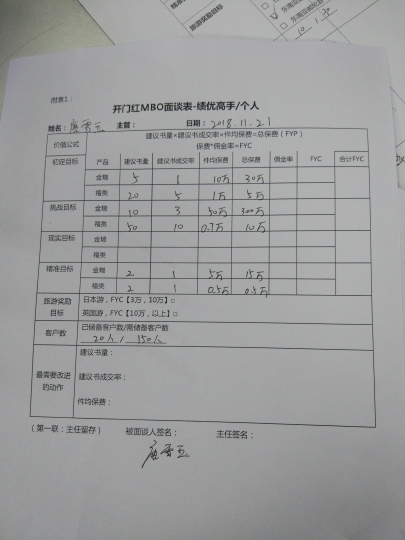 附表1：
开门红MBO面谈表-绩优高手/个人
姓名： 主管： 日期：2018.11.21
价值公式 建议书量×建议书成交率×件均保费=总保费（FYP）
保费*佣金率=FYC
初定目标 产品 建议书量 建议书成交率 件均保费 总保费 佣金率 FYC 合计FYC
金瑞 5 1 10万 30万
福类 20 5 1万 5万
挑战目标 金瑞 10 3 50万 300万
福类 50 10 0.7万 10万
现实目标 金瑞
福类
精准目标 金瑞 2 1 5万 15万
福类 2 1 0.5万 0.5万
旅游奖励目标 日本游，FYC【3万，10万】□
英国游，FYC【10万，以上】□
客户数 已储备客户数/需储备客户数
20人/ 150人
最需要改进的动作 建议书量：
建议书成交率：
件均保费：
（第一联：主任留存） 被面谈人签名： 主任签名：